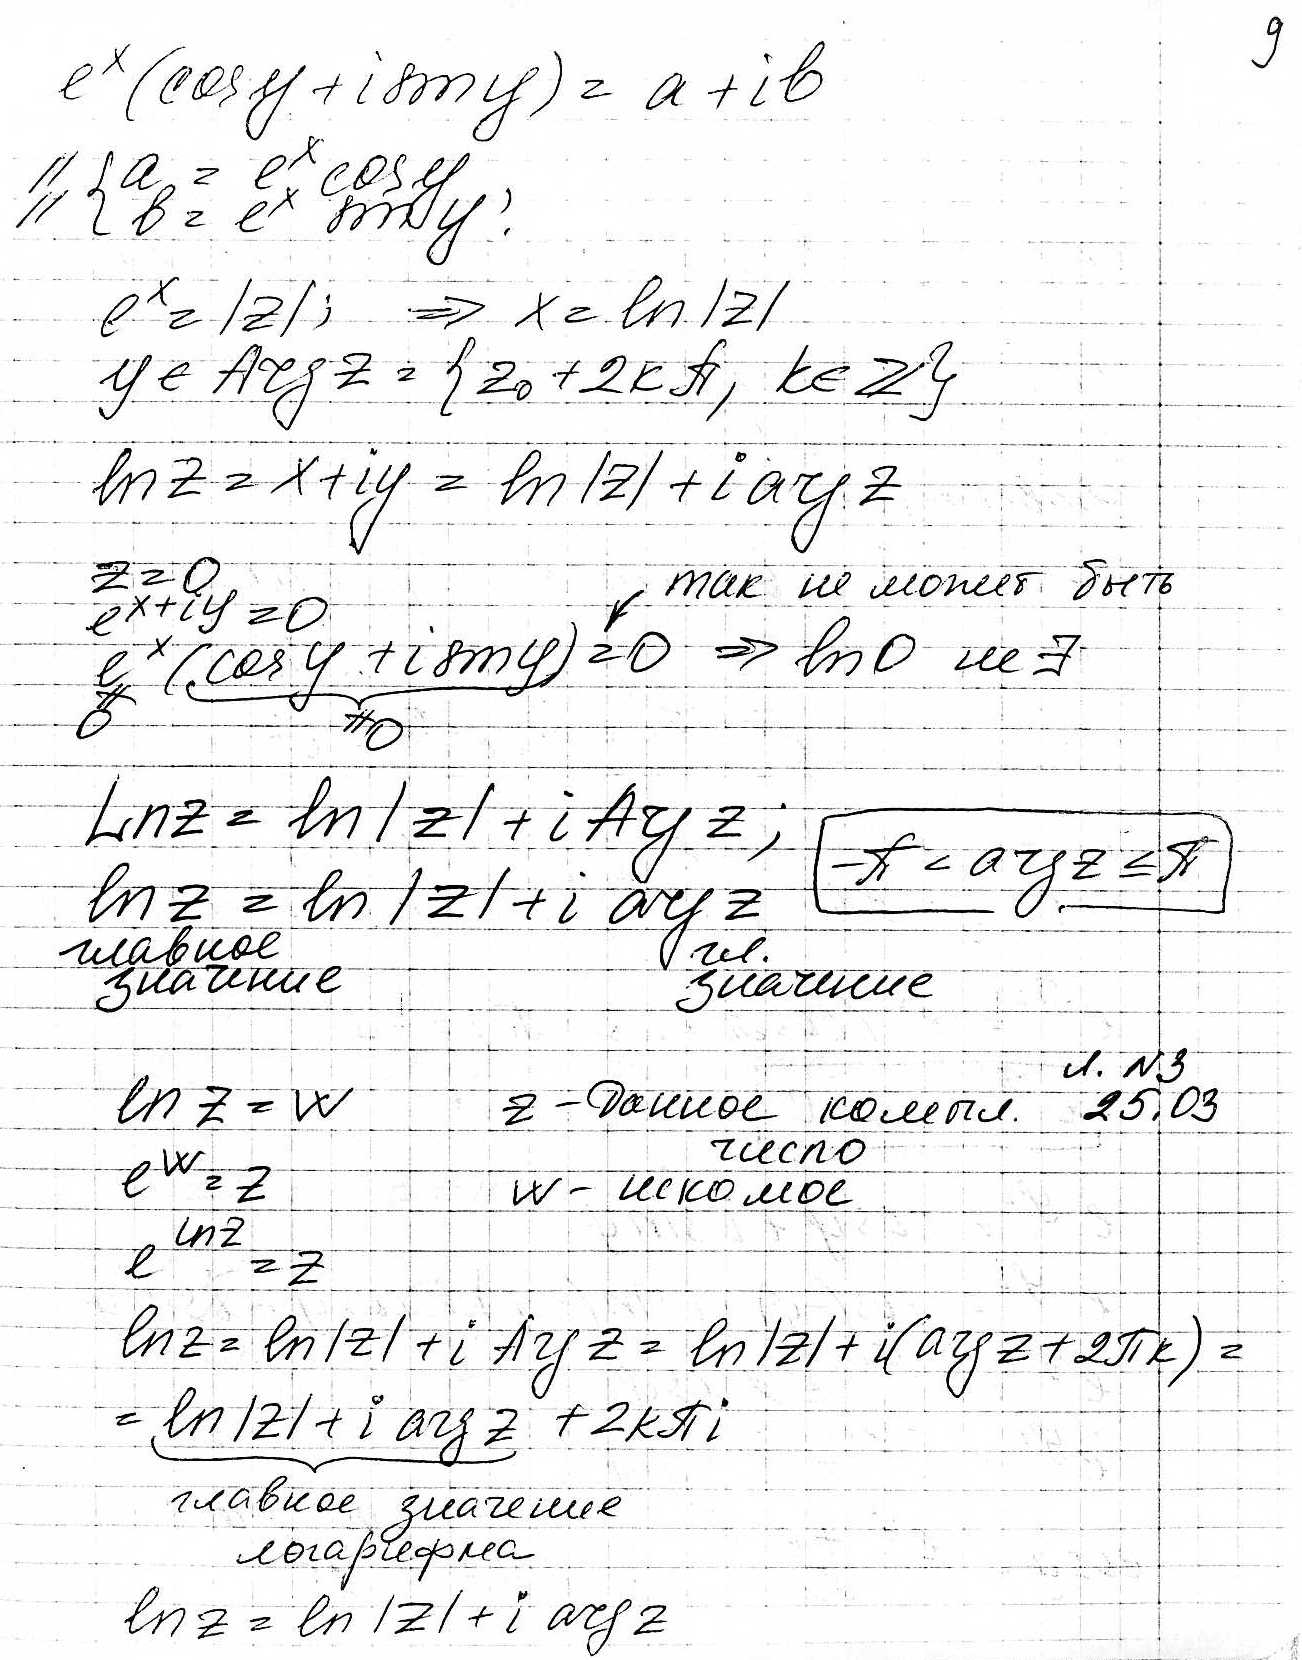 9
e^x (cos y + i sin y) = a + ib
// { a = e^x cos y
// { b = e^x sin y ;
e^x = |z| ; ⇒ x = ln |z|
y ∈ Arg z = {z₀ + 2kπ, k ∈ Z}
ln z = x + iy = ln |z| + i arg z
z = 0
e^{x+iy} = 0 так не может быть
e^x (cos y + i sin y) = 0 ⇒ ln 0 не ∃
≠ 0 ≠ 0
Ln z = ln |z| + i Arg z ; -π < arg z ≤ π
ln z = ln |z| + i arg z
главное гл.
значение значение
л. N3
ln z = w z - данное компл. 25.03
число
e^w = z w - искомое
e^{ln z} = z
ln z = ln |z| + i Arg z = ln |z| + i(arg z + 2πk) =
= ln |z| + i arg z + 2kπi
главное значение
логарифма
ln z = ln |z| + i arg z